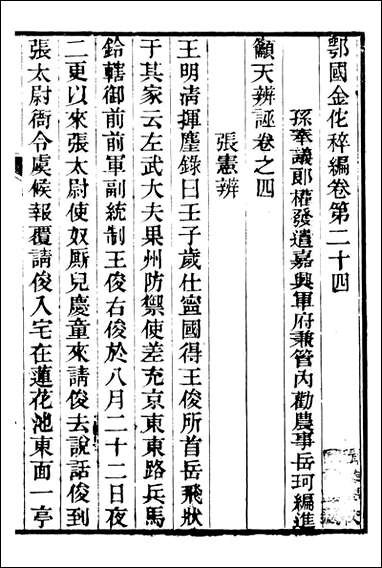 鄂國金佗稡編卷第二十四
孫奉議郎權發遣嘉興軍府兼管內勸農事岳珂編進
籲天辨誣卷之四
張憲辨
王明清揮麈錄曰壬子歲仕寧國得王俊所首岳飛狀
于其家云左武大夫果州防禦使差充京東東路兵馬
鈐轄御前前軍副統制王俊右俊於八月二十二日夜
二更以來張太尉使奴厮兒慶童來請俊去說話俊到
張太尉衙令虞候報覆請俊入宅在蓮花池東面一亭